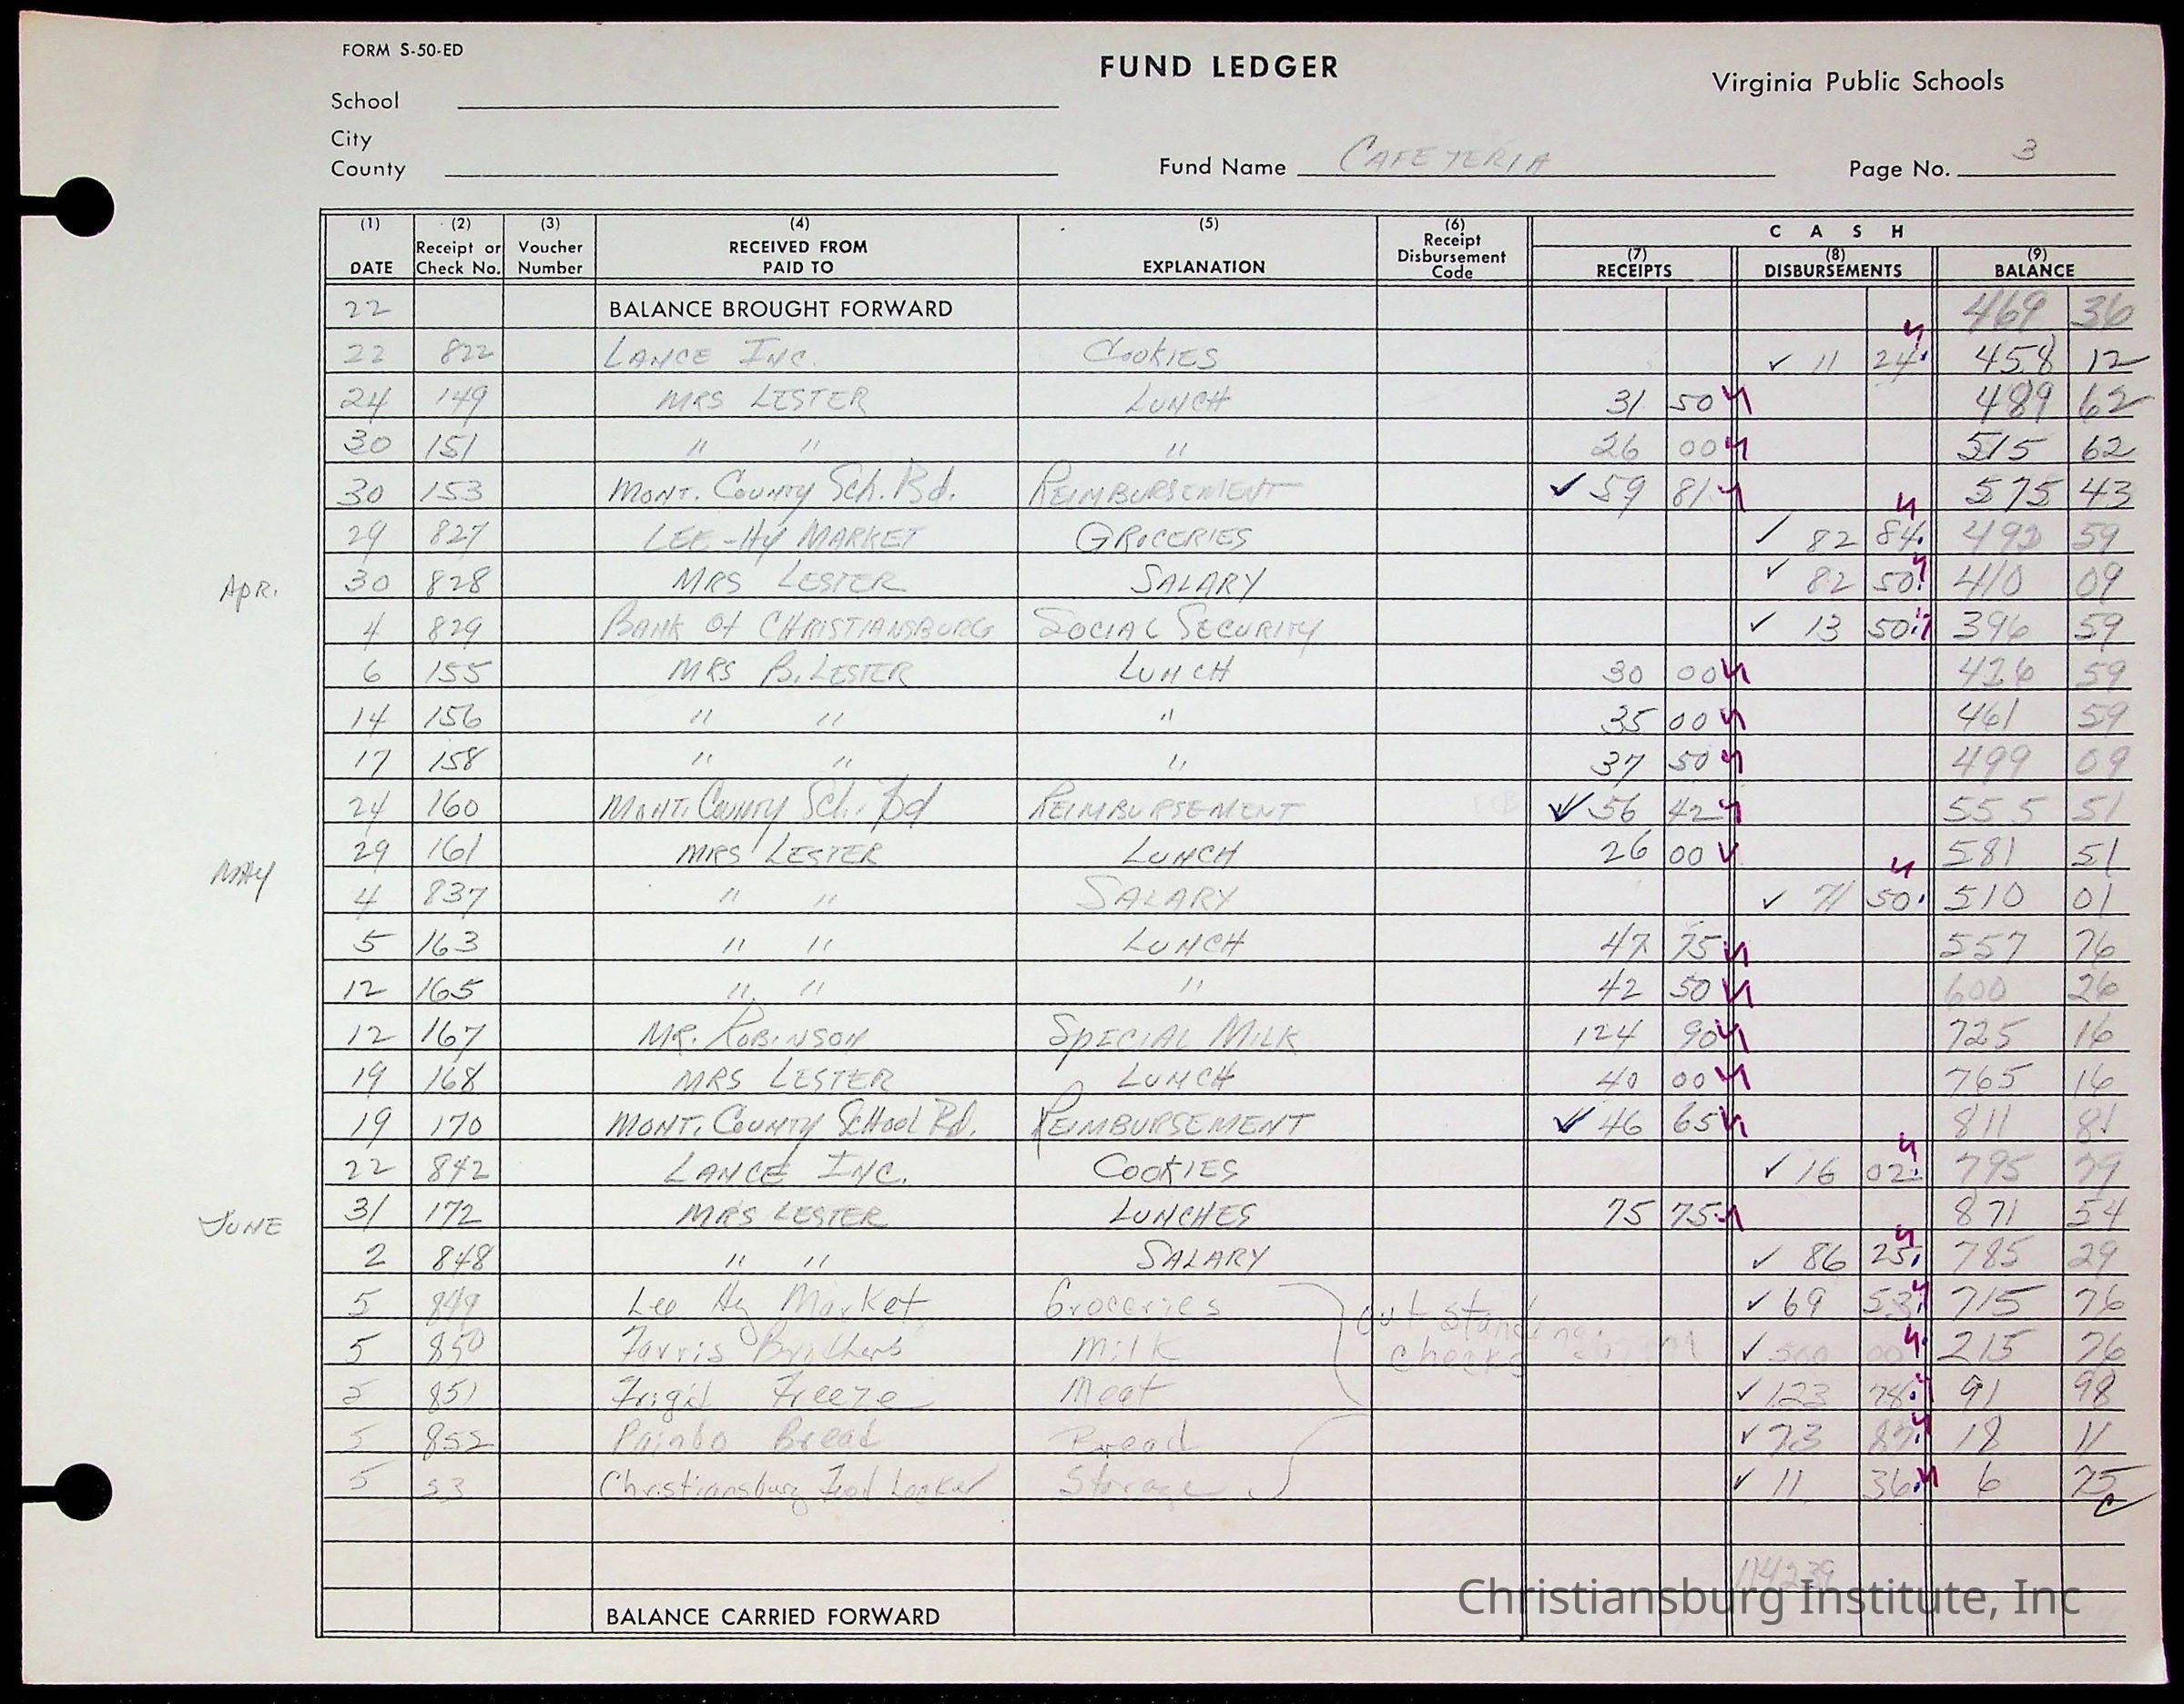 FORM S-50-ED
FUND LEDGER
Virginia Public Schools
School
City
County
Fund Name CAFETERIA
Page No. 3
(1) DATE (2) Receipt or Check No. (3) Voucher Number (4) RECEIVED FROM PAID TO (5) EXPLANATION (6) Receipt Disbursement Code CASH (7) RECEIPTS (8) DISBURSEMENTS (9) BALANCE
22 BALANCE BROUGHT FORWARD 469 36
22 822 LANCE INC. COOKIES ✓ 11 24 458 12
24 149 MRS LESTER LUNCH 31 50 489 62
30 151 " " " 26 00 515 62
30 153 MONT. COUNTY Sch. Bd. REIMBURSEMENT ✓ 59 81 575 43
29 827 LEE-Hy MARKET GROCERIES ✓ 82 84 492 59
Apr. 30 828 MRS LESTER SALARY ✓ 82 50 410 09
4 829 BANK Of CHRISTIANSBURG SOCIAL SECURITY ✓ 13 50 396 59
6 155 MRS B. LESTER LUNCH 30 00 426 59
14 156 " " " 35 00 461 59
17 158 " " " 37 50 499 09
24 160 MONT. COUNTY Sch. Bd REIMBURSEMENT ✓ 56 42 555 51
29 161 MRS LESTER LUNCH 26 00 581 51
MAY 4 837 " " SALARY ✓ 71 50 510 01
5 163 " " LUNCH 47 75 557 76
12 165 " " " 42 50 600 26
12 167 MR. ROBINSON SPECIAL MILK 124 90 725 16
19 168 MRS LESTER LUNCH 40 00 765 16
19 170 MONT. COUNTY SCHOOL Bd. REIMBURSEMENT ✓ 46 65 811 81
22 842 LANCE INC. COOKIES ✓ 16 02 795 79
JUNE 31 172 MRS LESTER LUNCHES 75 75 871 54
2 848 " " SALARY ✓ 86 25 785 29
5 849 Lee Hy Market Groceries ✓ 69 53 715 76
out standing
5 850 Farris Brothers Milk ✓ 500 00 215 76
checks
5 851 Frigid Freeze Meat ✓ 123 78 91 98
5 852 Rainbo Bread Bread ✓ 73 87 18 11
5 53 Christiansburg Food Locker Storage ✓ 11 36 6 75
114239
BALANCE CARRIED FORWARD
Christiansburg Institute, Inc